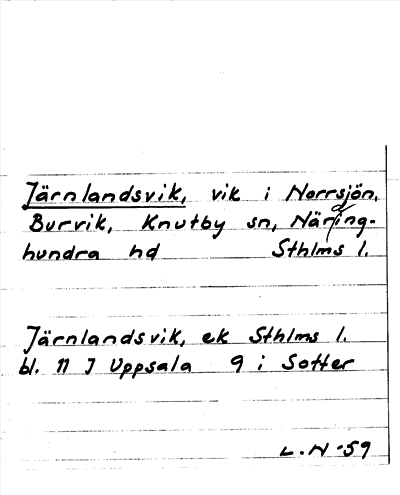 Järnlandsvik, vik i Norrsjön,
Burvik, Knutby sn, Närding-
hundra hd Sthlms l.
Järnlandsvik, ek Sthlms l.
bl. 11 J Uppsala 9 i Sotter
L. N -59